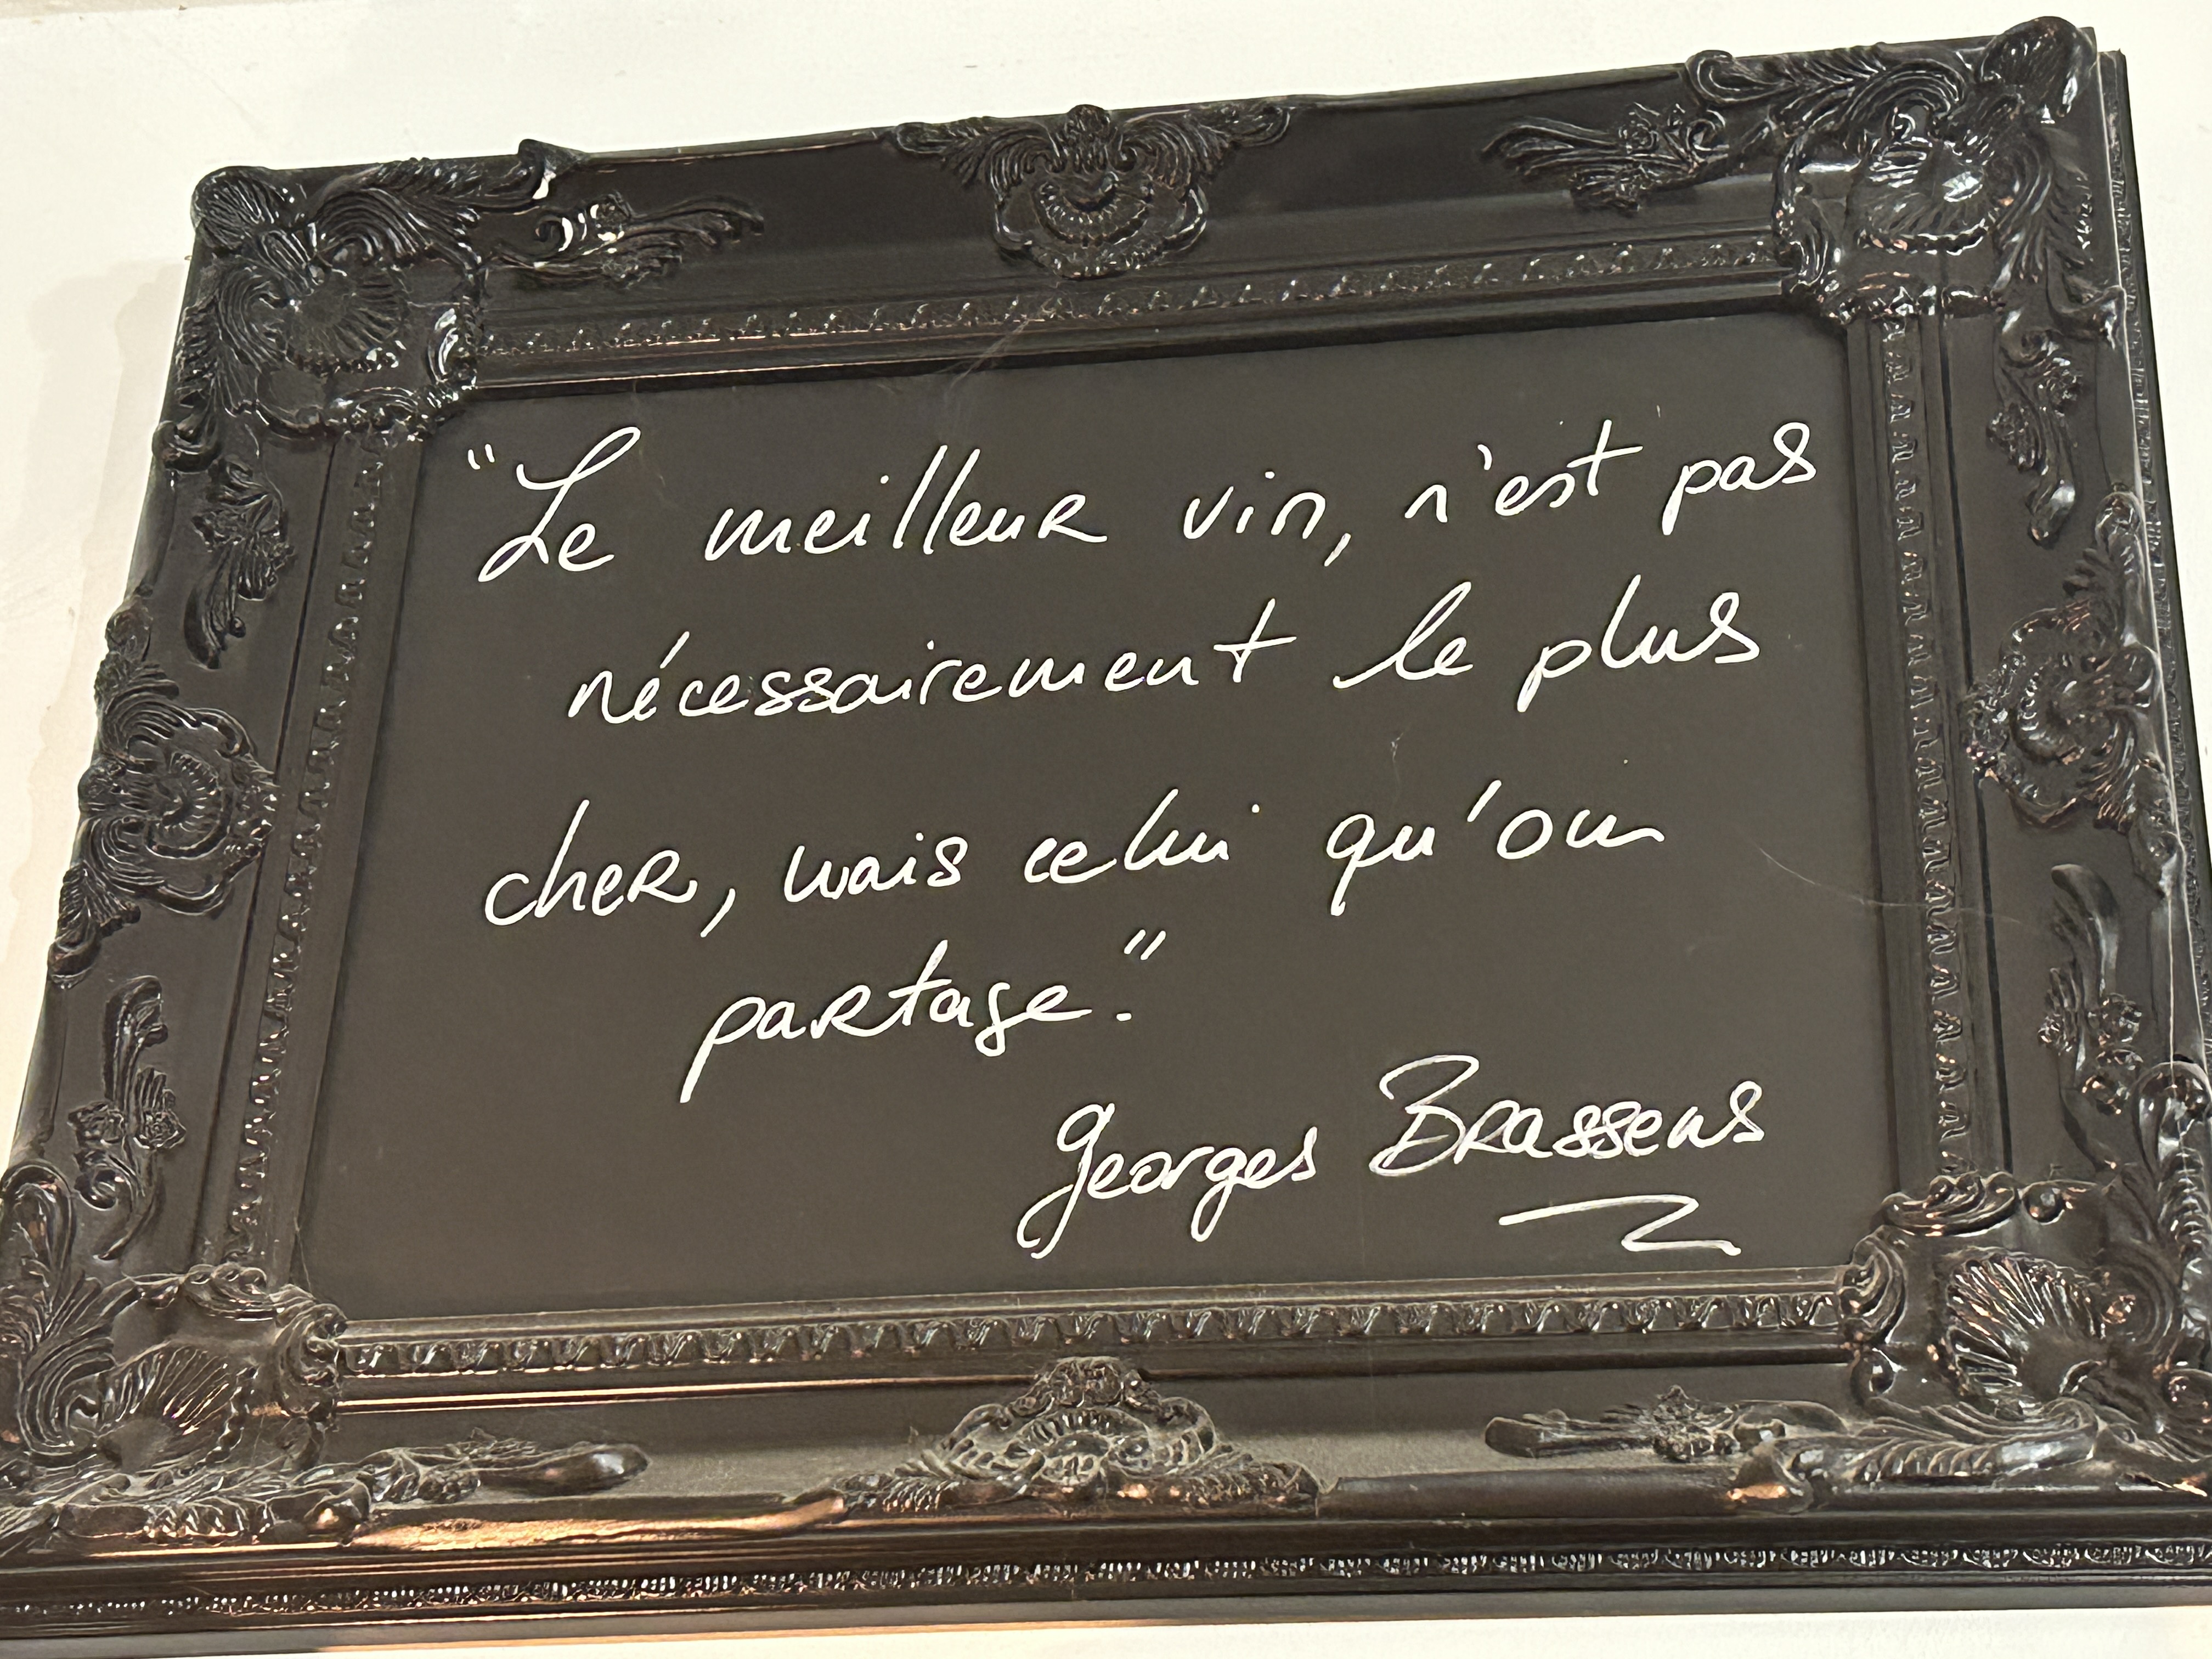 "Le meilleur vin, n'est pas
nécessairement le plus
cher, mais celui qu'on
partage."
Georges Brassens